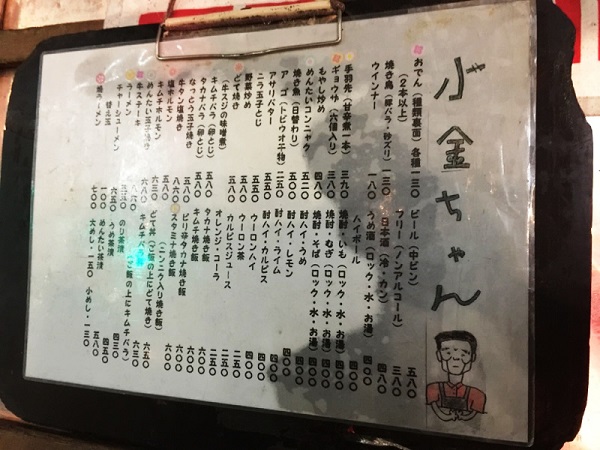 小金ちゃん
おでん（種類裏面）各種一三〇
（２本以上）
焼き鳥（豚バラ・砂ズリ）一三〇
ウインナー 一八〇
手羽先（甘辛煮一本）三九〇
ギョウザ（六個入り）三八〇
もやし炒め 四八〇
めんたいコンニャク 五二〇
焼き魚（日替わり）
アゴ（トビウオ干物）二五〇
アサリバター 五五〇
ニラ玉子とじ 五五〇
野菜炒め 五五〇
どて焼き 五八〇
（牛スジの味噌煮）
キムチバラ（卵とじ）五八〇
タカナバラ（卵とじ）五八〇
なっとう玉子焼き 五八〇
牛タン塩焼き 八六〇
塩ホルモン
キムチホルモン
めんたい玉子焼き 六三〇
牛ステーキ 六八〇
ラーメン 五五〇
チャーシューメン 六五〇
替え玉 一〇〇
焼ラーメン 七〇〇
ビール（中ビン）五八〇
フリー（ノンアルコール）三八〇
日本酒（冷・カン）四八〇
うめ酒（ロック・水・お湯）四〇〇
ハイボール 四〇〇
焼酎・いも（ロック・水・お湯）四〇〇
焼酎・むぎ（ロック・水・お湯）四〇〇
焼酎・そば（ロック・水・お湯）四〇〇
酎ハイ・うめ 四〇〇
酎ハイ・レモン 四〇〇
酎ハイ・ライム 四〇〇
酎ハイ・カルピス 四〇〇
ウーロンハイ 四〇〇
ウーロン茶 二五〇
カルピスジュース 二五〇
オレンジ・コーラ 二五〇
キムチ焼き飯 六〇〇
タカナ焼き飯 六〇〇
ピリ辛タカナ焼き飯 六〇〇
スタミナ焼き飯 六〇〇
（ニンニク入り焼き飯）
どて丼（ご飯の上にどて焼き）六五〇
キムチバラ
（ご飯の上にキムチバラ）六三〇
のり茶漬 四三〇
うめ茶漬 四五〇
めんたい茶漬 五八〇
大めし・一五〇 小めし・一三〇